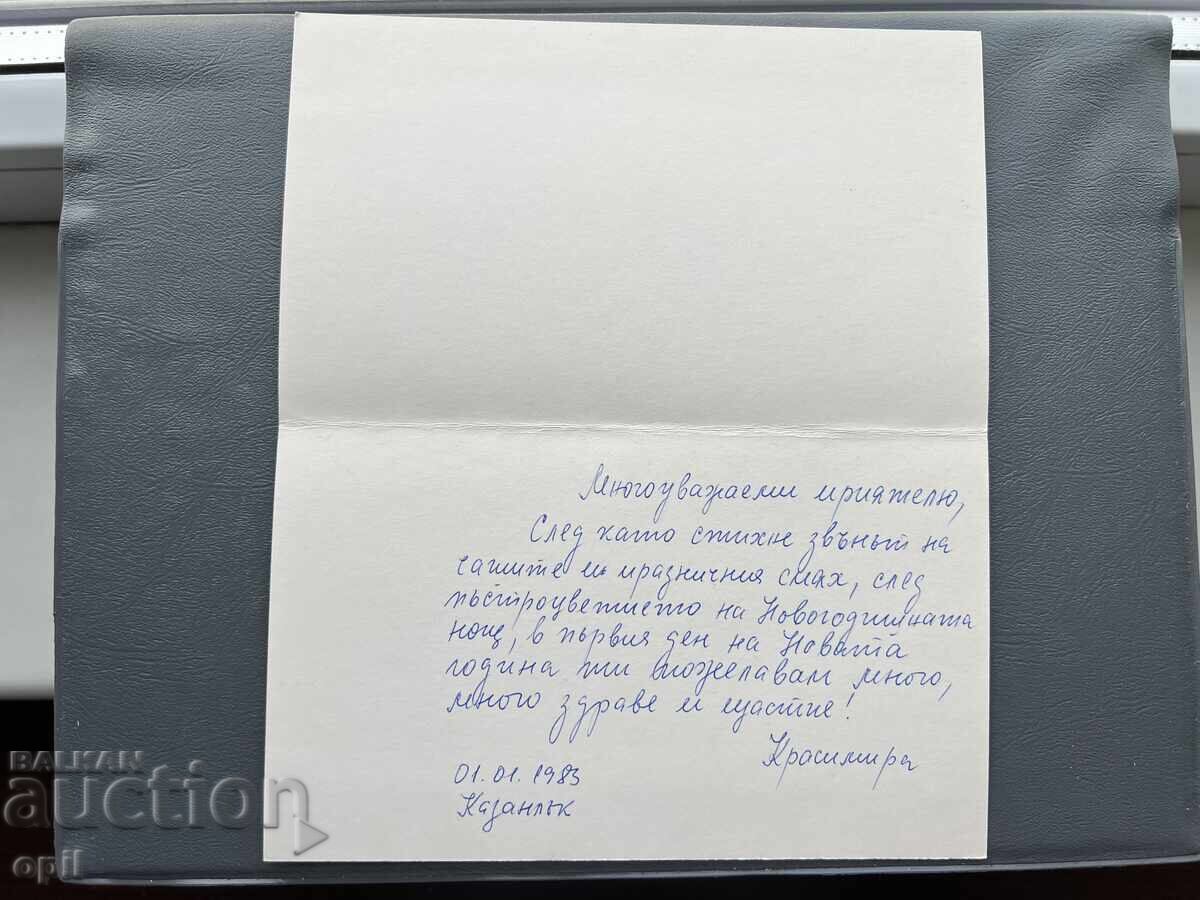 Многоуважаеми приятелю,
След като стихне звънът на
чашите и празничния смях, след
пъстроцветието на Новогодишната
нощ, в първия ден на Новата
година ти пожелавам много,
много здраве и щастие!
Красимира
01.01.1983
Казанлък
BALKAN
auction
opil